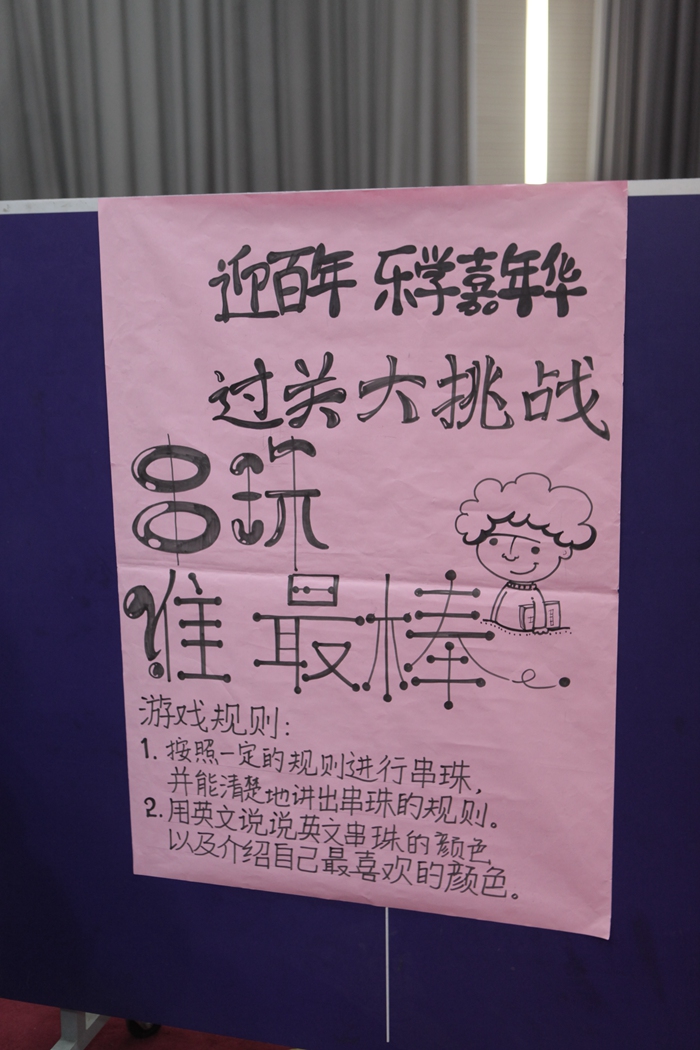 迎百年 乐学嘉年华
过关大挑战
串珠
谁最棒
游戏规则:
1. 按照一定的规则进行串珠,
并能清楚地讲出串珠的规则。
2. 用英文说说英文串珠的颜色,
以及介绍自己最喜欢的颜色。